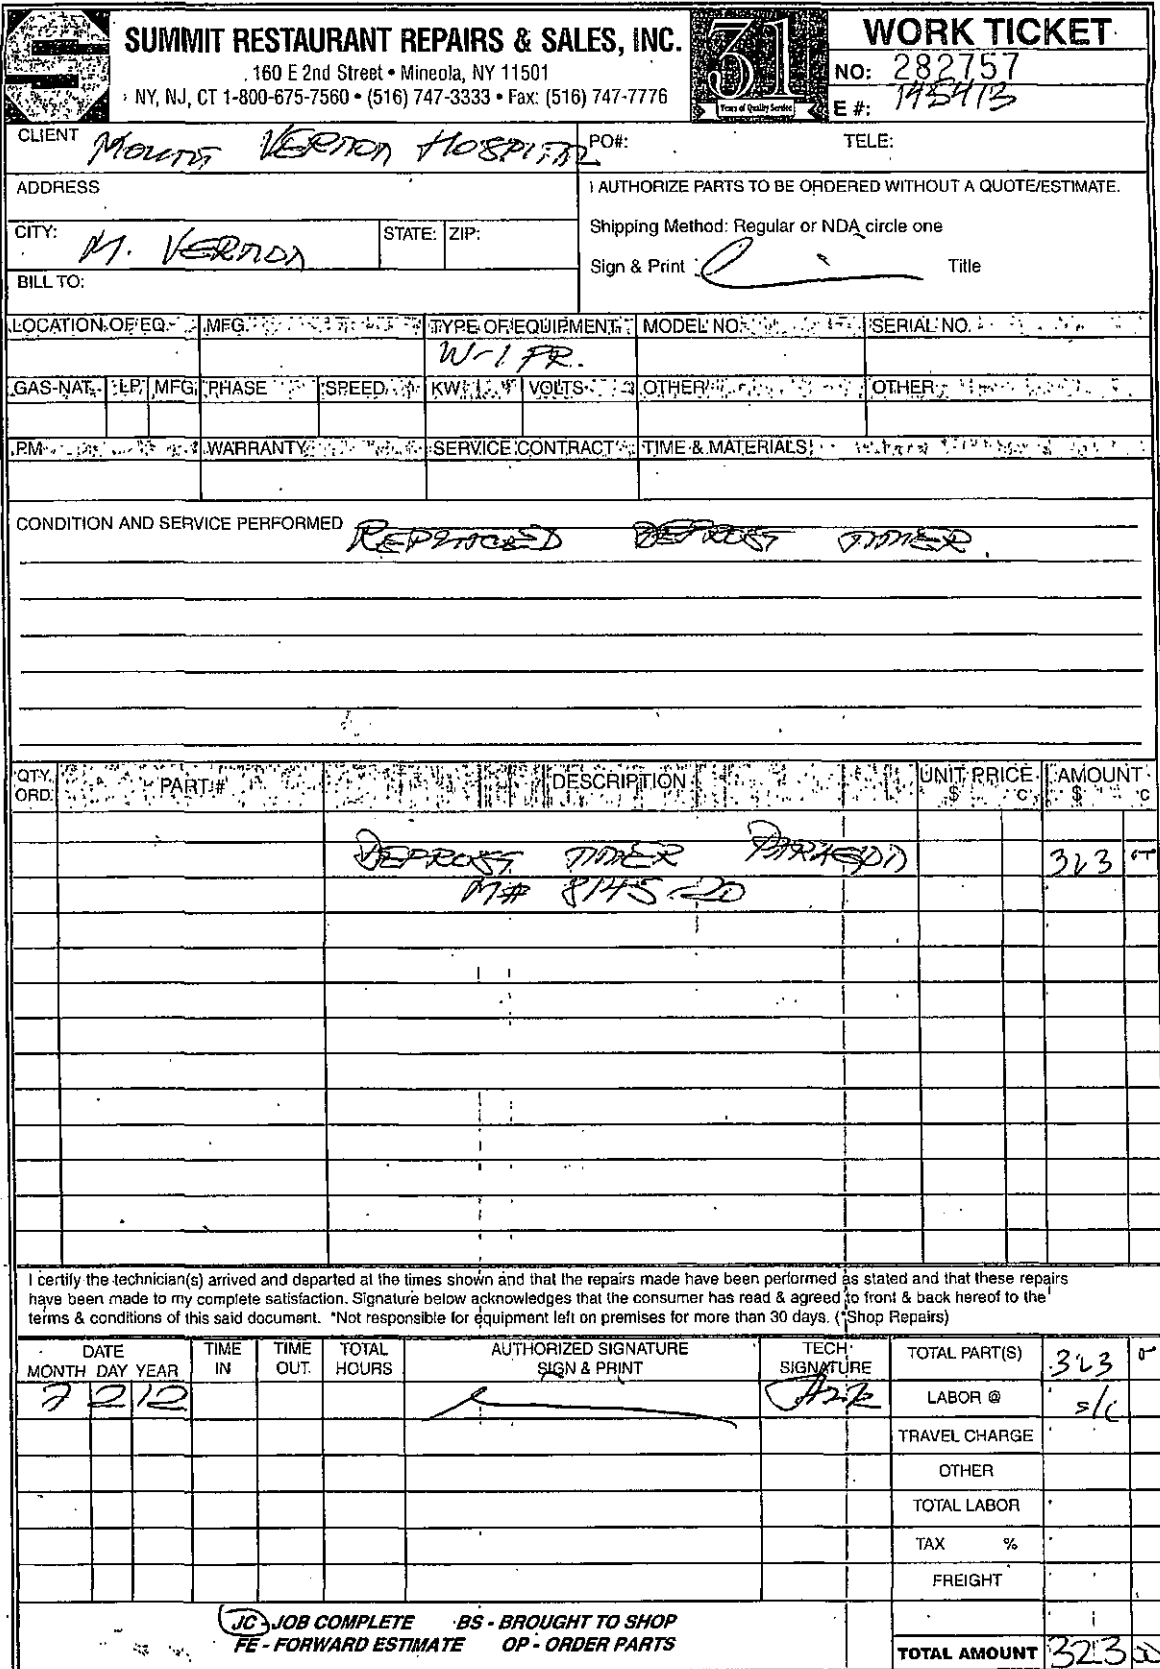 SUMMIT RESTAURANT REPAIRS & SALES, INC.
160 E 2nd Street • Mineola, NY 11501
NY, NJ, CT 1-800-675-7560 • (516) 747-3333 • Fax: (516) 747-7776
31
Years of Quality Service
WORK TICKET
NO: 282757
E #: 145413
CLIENT MOUNT VERNON HOSPITAL
PO#: TELE:
ADDRESS
I AUTHORIZE PARTS TO BE ORDERED WITHOUT A QUOTE/ESTIMATE.
CITY: M. VERNON STATE: ZIP:
Shipping Method: Regular or NDA circle one
Sign & Print : Title
BILL TO:
LOCATION OF EQ. MFG. TYPE OF EQUIPMENT MODEL NO. SERIAL NO.
W-1 FR.
GAS-NAT. LP MFG PHASE SPEED KW VOLTS OTHER OTHER
PM WARRANTY SERVICE CONTRACT TIME & MATERIALS
CONDITION AND SERVICE PERFORMED REPLACED DEFROST TIMER.
QTY. ORD. PART # DESCRIPTION UNIT PRICE $ C AMOUNT $ C
DEFROST TIMER PARAGON 323
M# 8145-20
I certify the technician(s) arrived and departed at the times shown and that the repairs made have been performed as stated and that these repairs
have been made to my complete satisfaction. Signature below acknowledges that the consumer has read & agreed to front & back hereof to the
terms & conditions of this said document. *Not responsible for equipment left on premises for more than 30 days. (*Shop Repairs)
DATE
MONTH DAY YEAR
TIME IN
TIME OUT
TOTAL HOURS
AUTHORIZED SIGNATURE
SIGN & PRINT
TECH SIGNATURE
TOTAL PART(S) 323
7 2 12
LABOR @ s/c
TRAVEL CHARGE
OTHER
TOTAL LABOR
TAX %
FREIGHT
JC - JOB COMPLETE BS - BROUGHT TO SHOP
FE - FORWARD ESTIMATE OP - ORDER PARTS
TOTAL AMOUNT 323 00